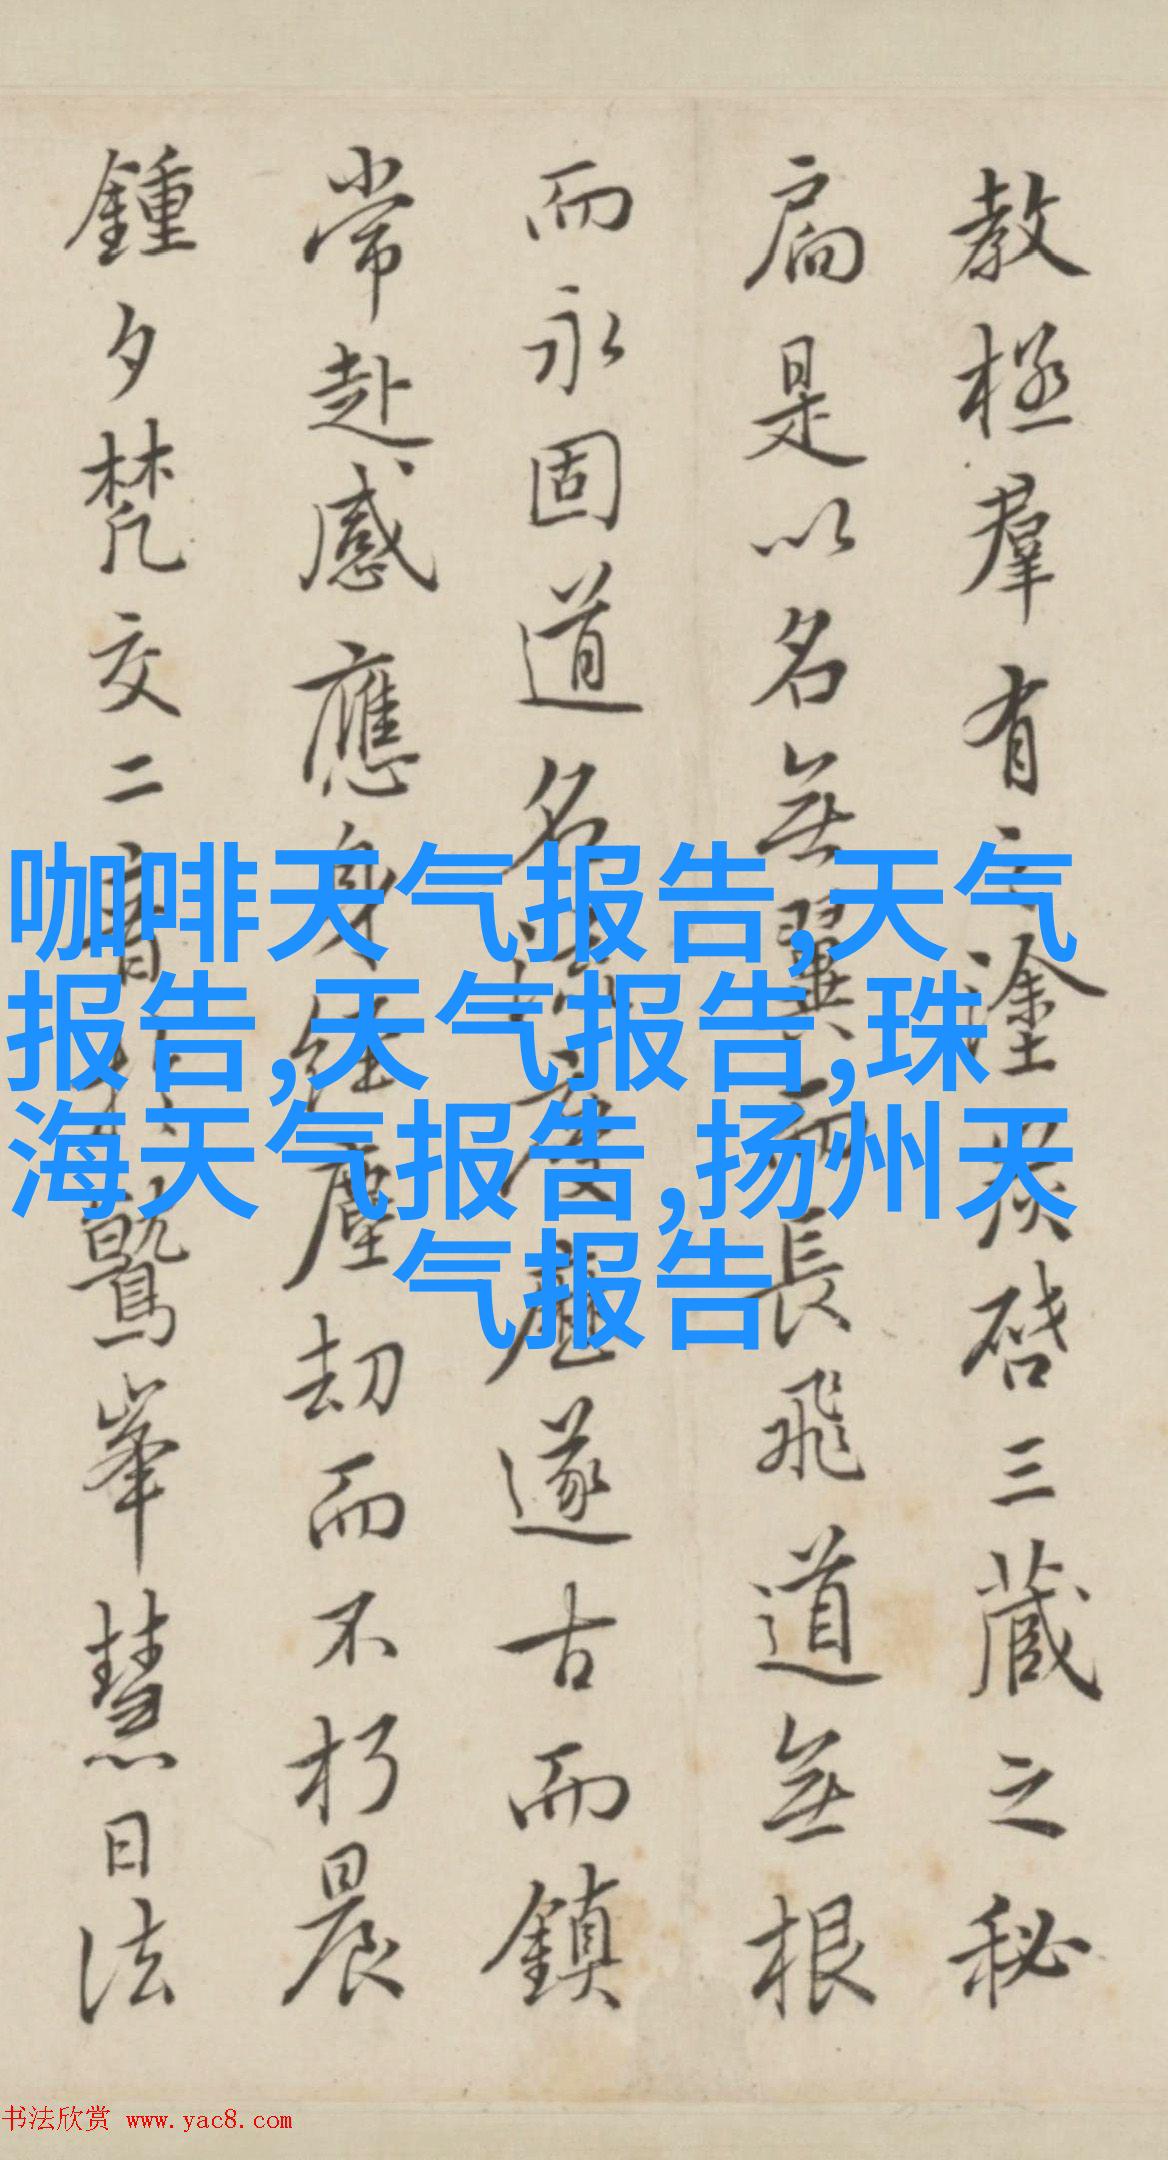 教極羣有之塗炭啓三藏之秘
扃是以名無翼而長飛道無根
而永固道名流慶歷遂古而鎮
常赴感應身經塵劫而不朽晨
鍾夕梵交二音於鷲峯慧日法
咖啡天气报告,天气
报告,天气报告,珠
海天气报告,扬州天
气报告
书法欣赏 www.yac8.com